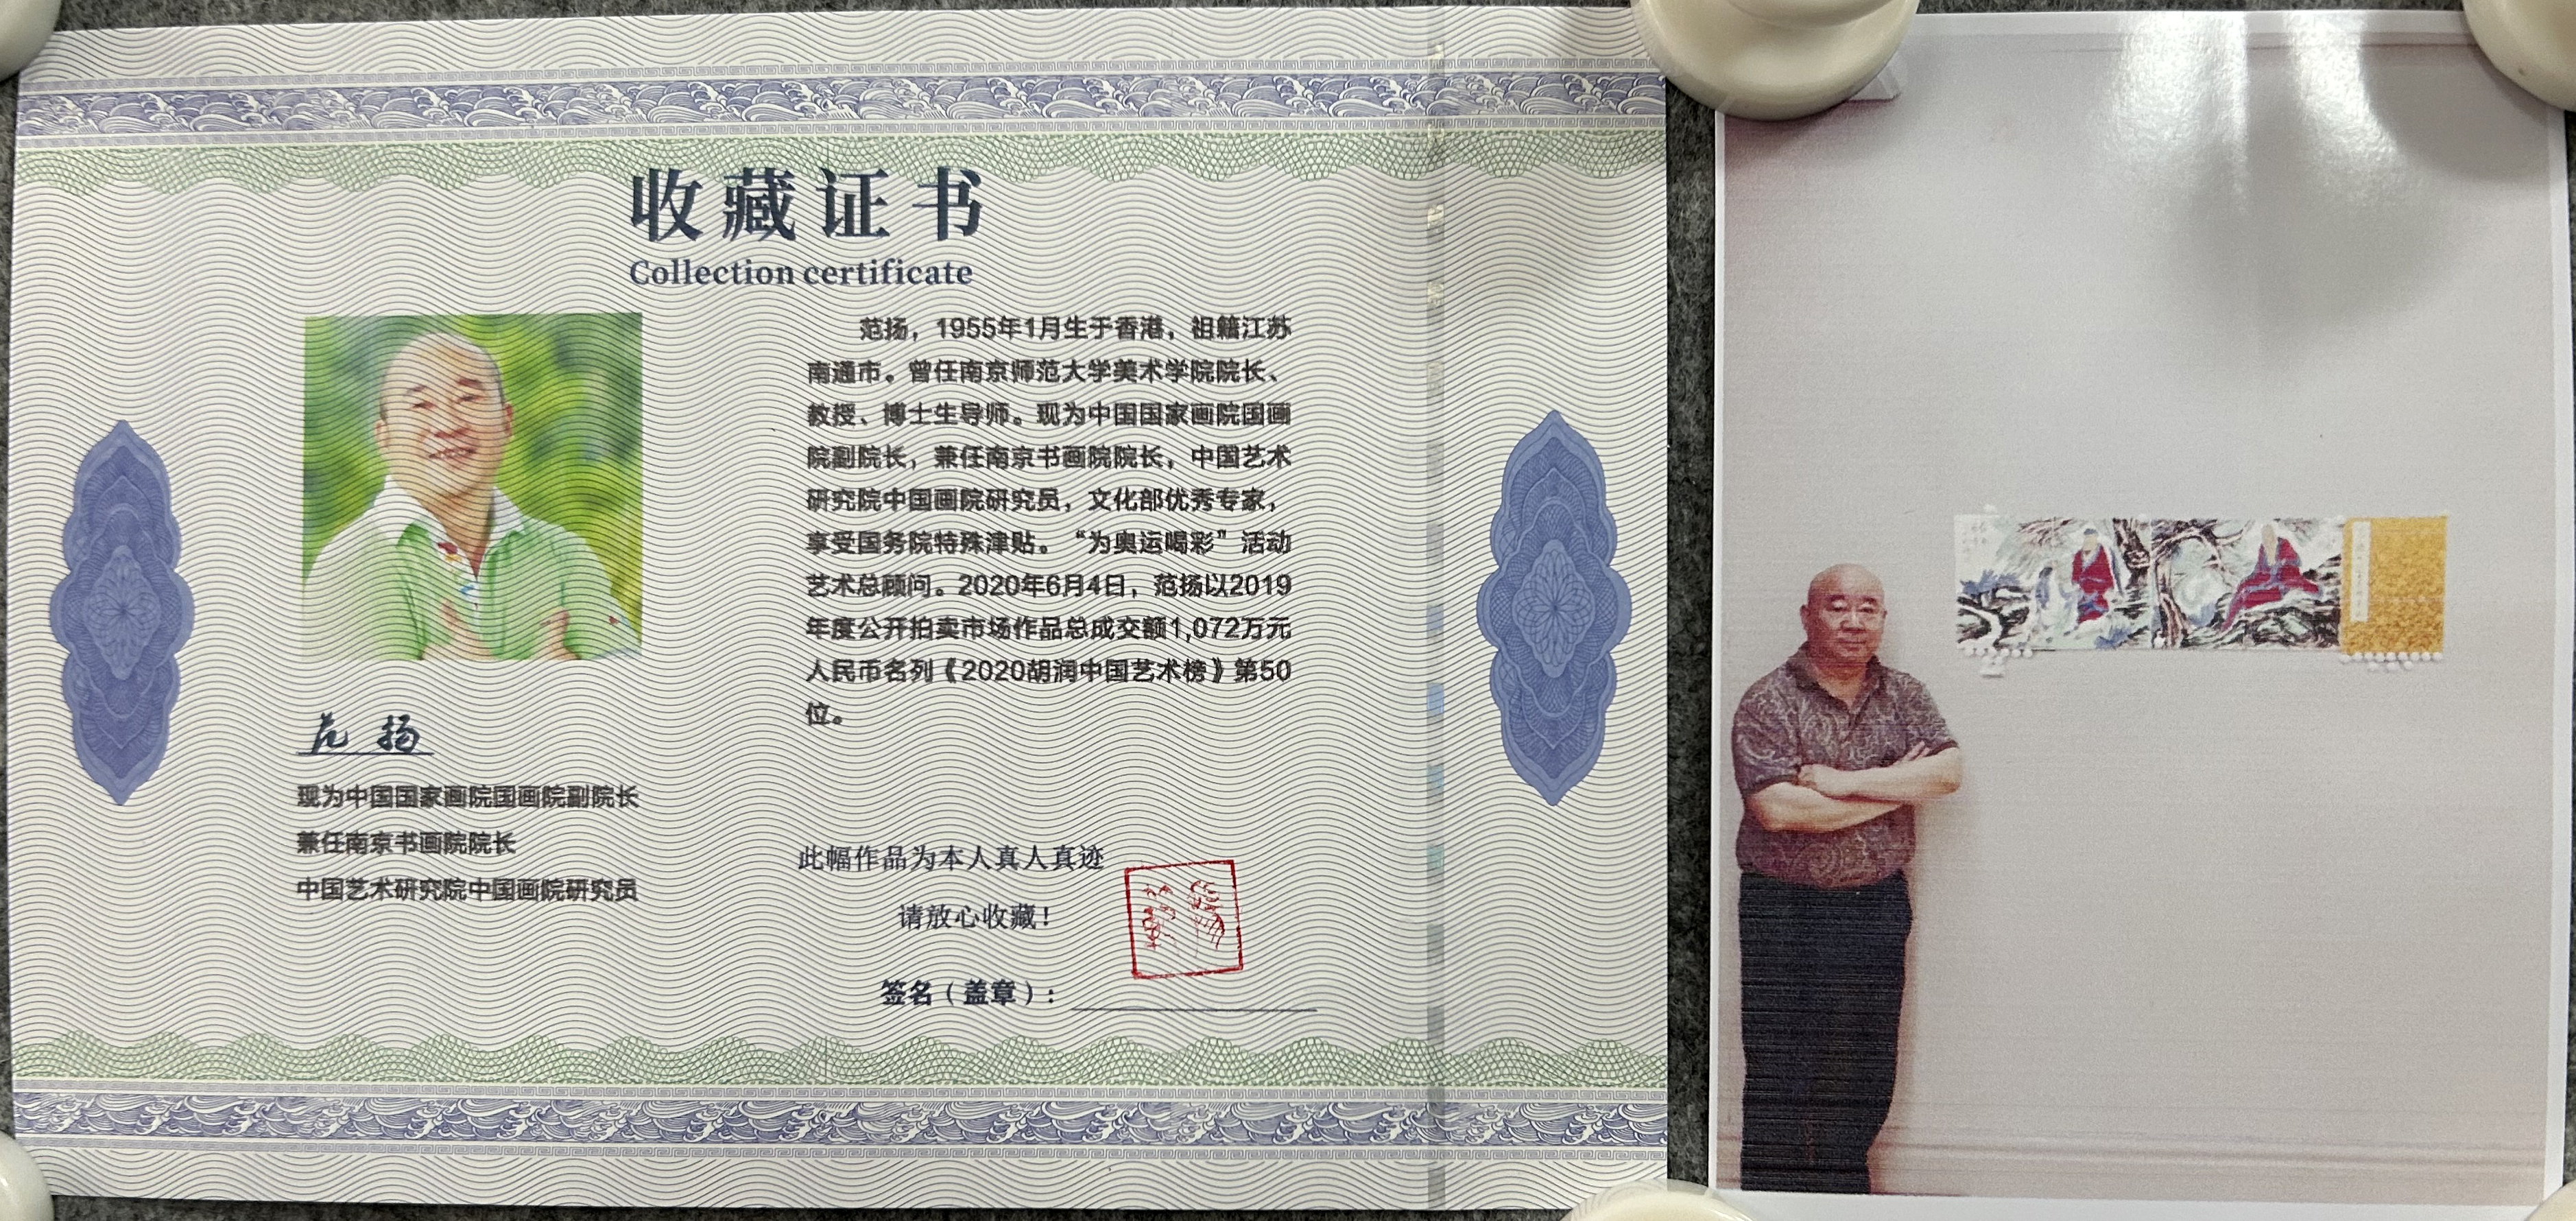 收藏证书
Collection certificate
范扬，1955年1月生于香港，祖籍江苏
南通市。曾任南京师范大学美术学院院长、
教授、博士生导师。现为中国国家画院国画
院副院长，兼任南京书画院院长，中国艺术
研究院中国画院研究员，文化部优秀专家，
享受国务院特殊津贴。“为奥运喝彩”活动
艺术总顾问。2020年6月4日，范扬以2019
年度公开拍卖市场作品总成交额1,072万元
人民币名列《2020胡润中国艺术榜》第50
位。
范扬
现为中国国家画院国画院副院长
兼任南京书画院院长
中国艺术研究院中国画院研究员
此幅作品为本人真人真迹
请放心收藏！
签名（盖章）：